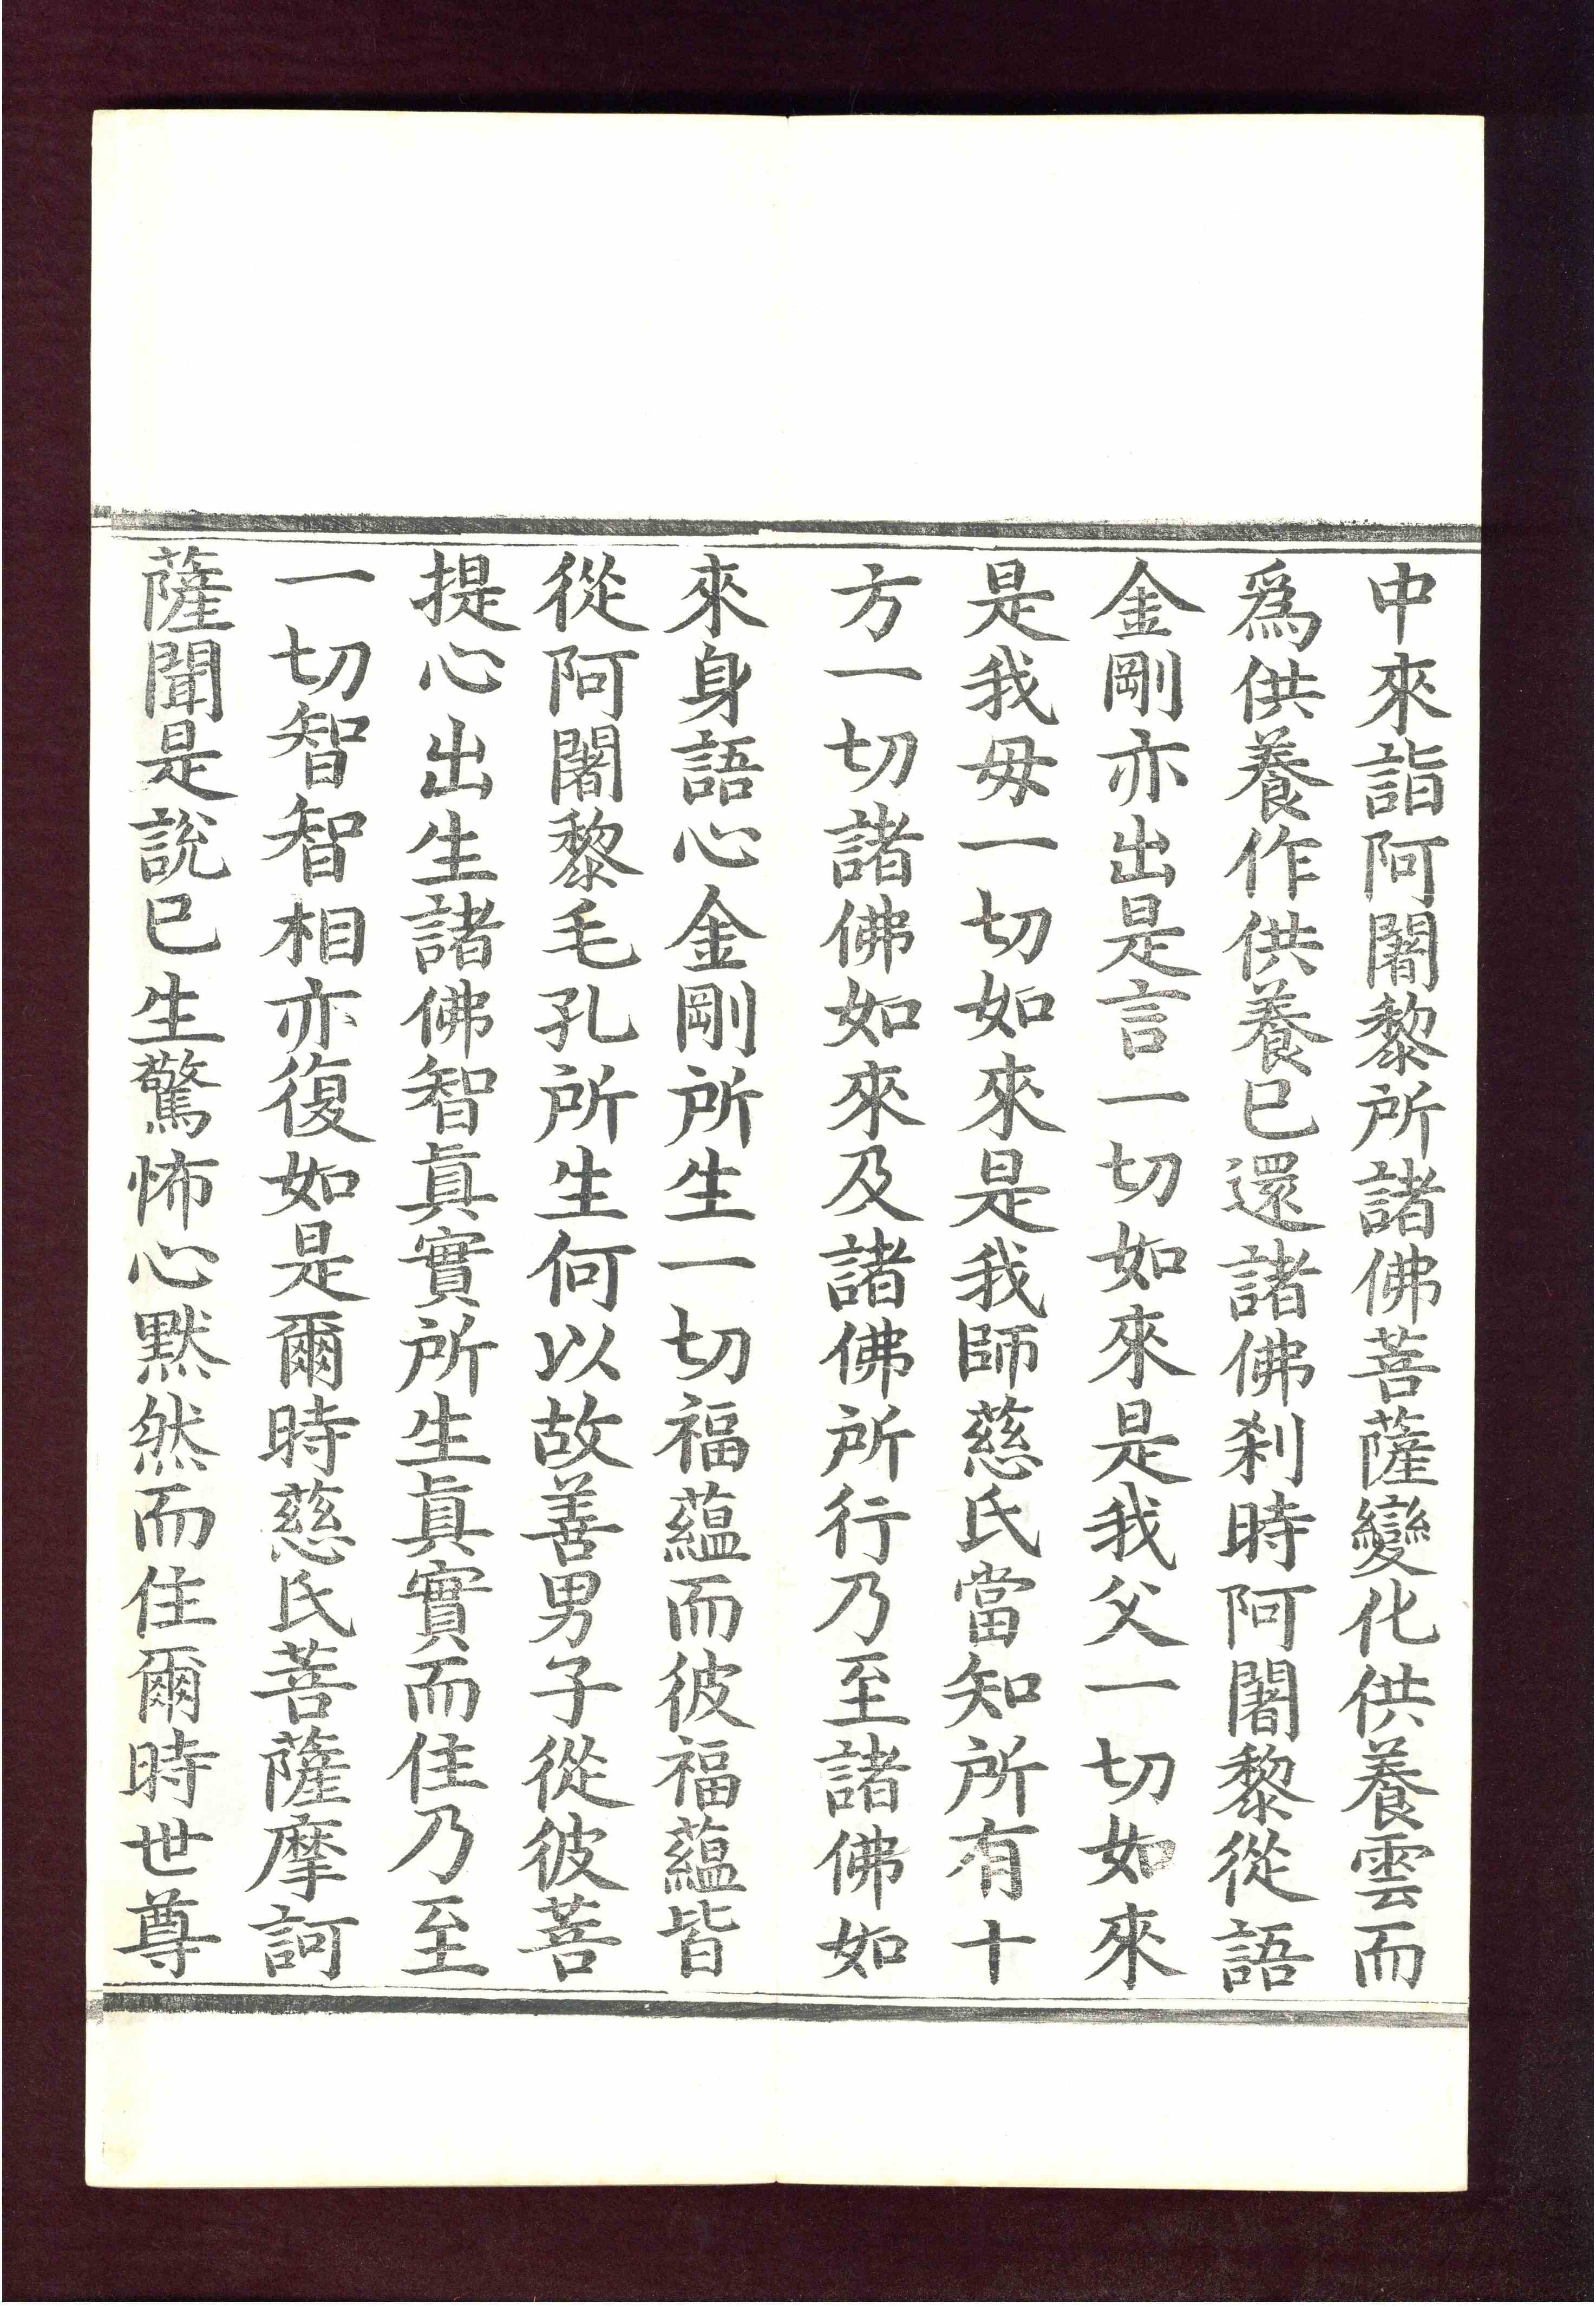 中來詣阿闍黎所諸佛菩薩變化供養雲而
爲供養作供養已還諸佛刹時阿闍黎從語
金剛亦出是言一切如來是我父一切如來
是我母一切如來是我師慈氏當知所有十
方一切諸佛如來及諸佛所行乃至諸佛如
來身語心金剛所生一切福蘊而彼福蘊皆
從阿闍黎毛孔所生何以故善男子從彼菩
提心出生諸佛智眞實所生眞實而住乃至
一切智智相亦復如是爾時慈氏菩薩摩訶
薩聞是說已生驚怖心默然而住爾時世尊